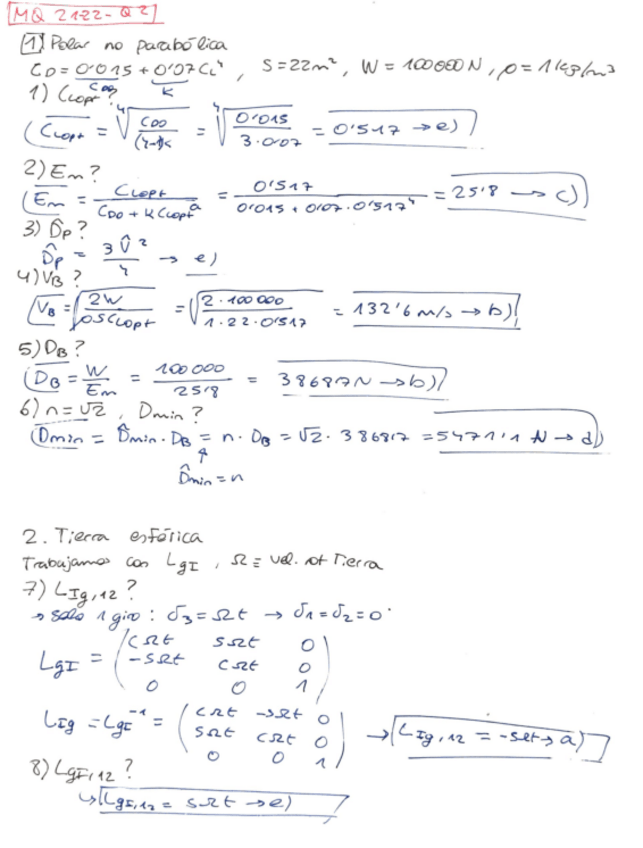 MQ 2122-Q2
1) Polar no parabólica
CD = 0'015 + 0'07 CL⁴, S = 22m², W = 100000N, ρ = 1 kg/m³
CD0 K
1) CLopt?
CLopt = ⁴√(CD0/(4-1)K) = ⁴√(0'015/3·0'07) = 0'517 → e)
2) Em?
Em = CLopt/(CD0 + K CLopt^a) = 0'517/(0'015 + 0'07·0'517⁴) = 25'8 → c)
3) D̂p?
D̂p = 3V̂²/4 → e)
4) VB?
VB = √(2W/ρSCLopt) = √(2·100000/1·22·0'517) = 132'6 m/s → b)
5) DB?
DB = W/Em = 100000/25'8 = 3868'7N → b)
6) n = √2, Dmin?
Dmin = D̂min · DB = n · DB = √2 · 3868'7 = 5471'1 N → d)
D̂min = n
2. Tierra esférica
Trabajamos con LgI, Ω ≡ vel. rot Tierra
7) LIg,12?
→ solo 1 giro: δ3 = Ωt → δ1 = δ2 = 0
LgI = (cΩt sΩt 0
-sΩt cΩt 0
0 0 1)
LIg = LgI⁻¹ = (cΩt -sΩt 0
sΩt cΩt 0
0 0 1) → LIg,12 = -sΩt → a)
8) LgI,12?
↳ LgI,12 = sΩt → e)